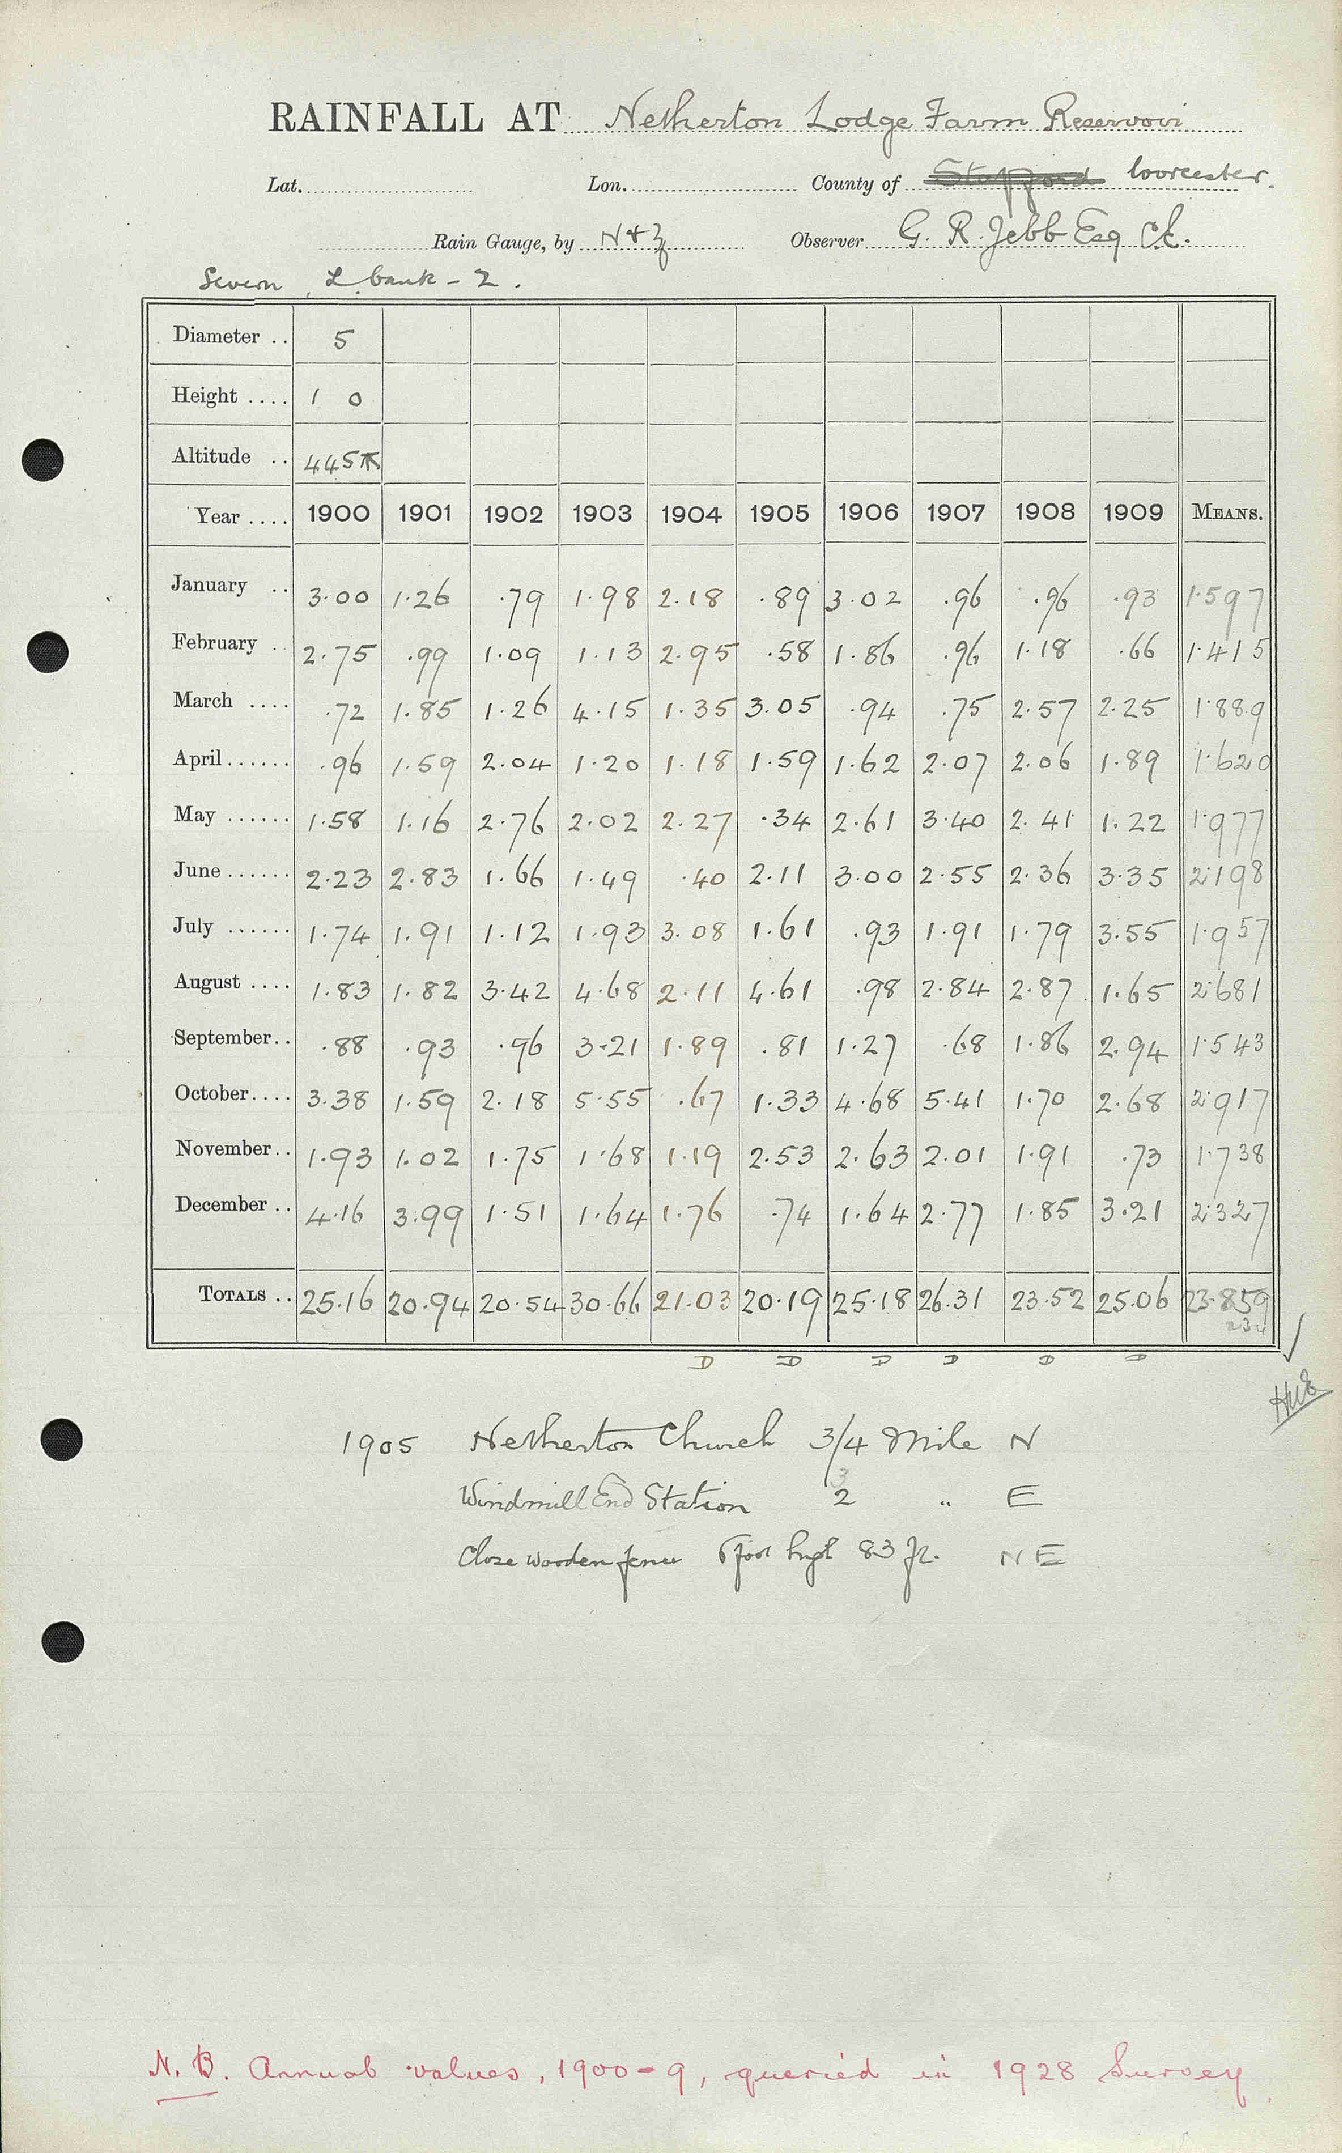 RAINFALL AT Netherton Lodge Farm Reservoir
Lat. Lon. County of Stafford Worcester.
Rain Gauge, by N & Z Observer G. R. Jebb Esq C.E.
Severn L bank - 2.
Diameter .. 5
Height .... 1 0
Altitude .. 445 ft
Year .... 1900 1901 1902 1903 1904 1905 1906 1907 1908 1909 MEANS.
January .. 3.00 1.26 .79 1.98 2.18 .89 3.02 .96 .96 .93 1.597
February .. 2.75 .99 1.09 1.13 2.95 .58 1.86 .96 1.18 .66 1.415
March .... .72 1.85 1.26 4.15 1.35 3.05 .94 .75 2.57 2.25 1.889
April ...... .96 1.59 2.04 1.20 1.18 1.59 1.62 2.07 2.06 1.89 1.620
May ...... 1.58 1.16 2.76 2.02 2.27 .34 2.61 3.40 2.41 1.22 1.977
June ...... 2.23 2.83 1.66 1.49 .40 2.11 3.00 2.55 2.36 3.35 2.198
July ...... 1.74 1.91 1.12 1.93 3.08 1.61 .93 1.91 1.79 3.55 1.957
August .... 1.83 1.82 3.42 4.68 2.11 4.61 .98 2.84 2.87 1.65 2.681
September .. .88 .93 .96 3.21 1.89 .81 1.27 .68 1.86 2.94 1.543
October .... 3.38 1.59 2.18 5.55 .67 1.33 4.68 5.41 1.70 2.68 2.917
November .. 1.93 1.02 1.75 1.68 1.19 2.53 2.63 2.01 1.91 .73 1.738
December .. 4.16 3.99 1.51 1.64 1.76 .74 1.64 2.77 1.85 3.21 2.327
TOTALS .. 25.16 20.94 20.54 30.66 21.03 20.19 25.18 26.31 23.52 25.06 23.859
D D D D D D
1905 Netherton Church 3/4 Mile N
Windmill End Station 2 3 " E
Close wooden fence 6 foot high 83 ft. NE
N.B. Annual values, 1900-9, queried in 1928 Survey